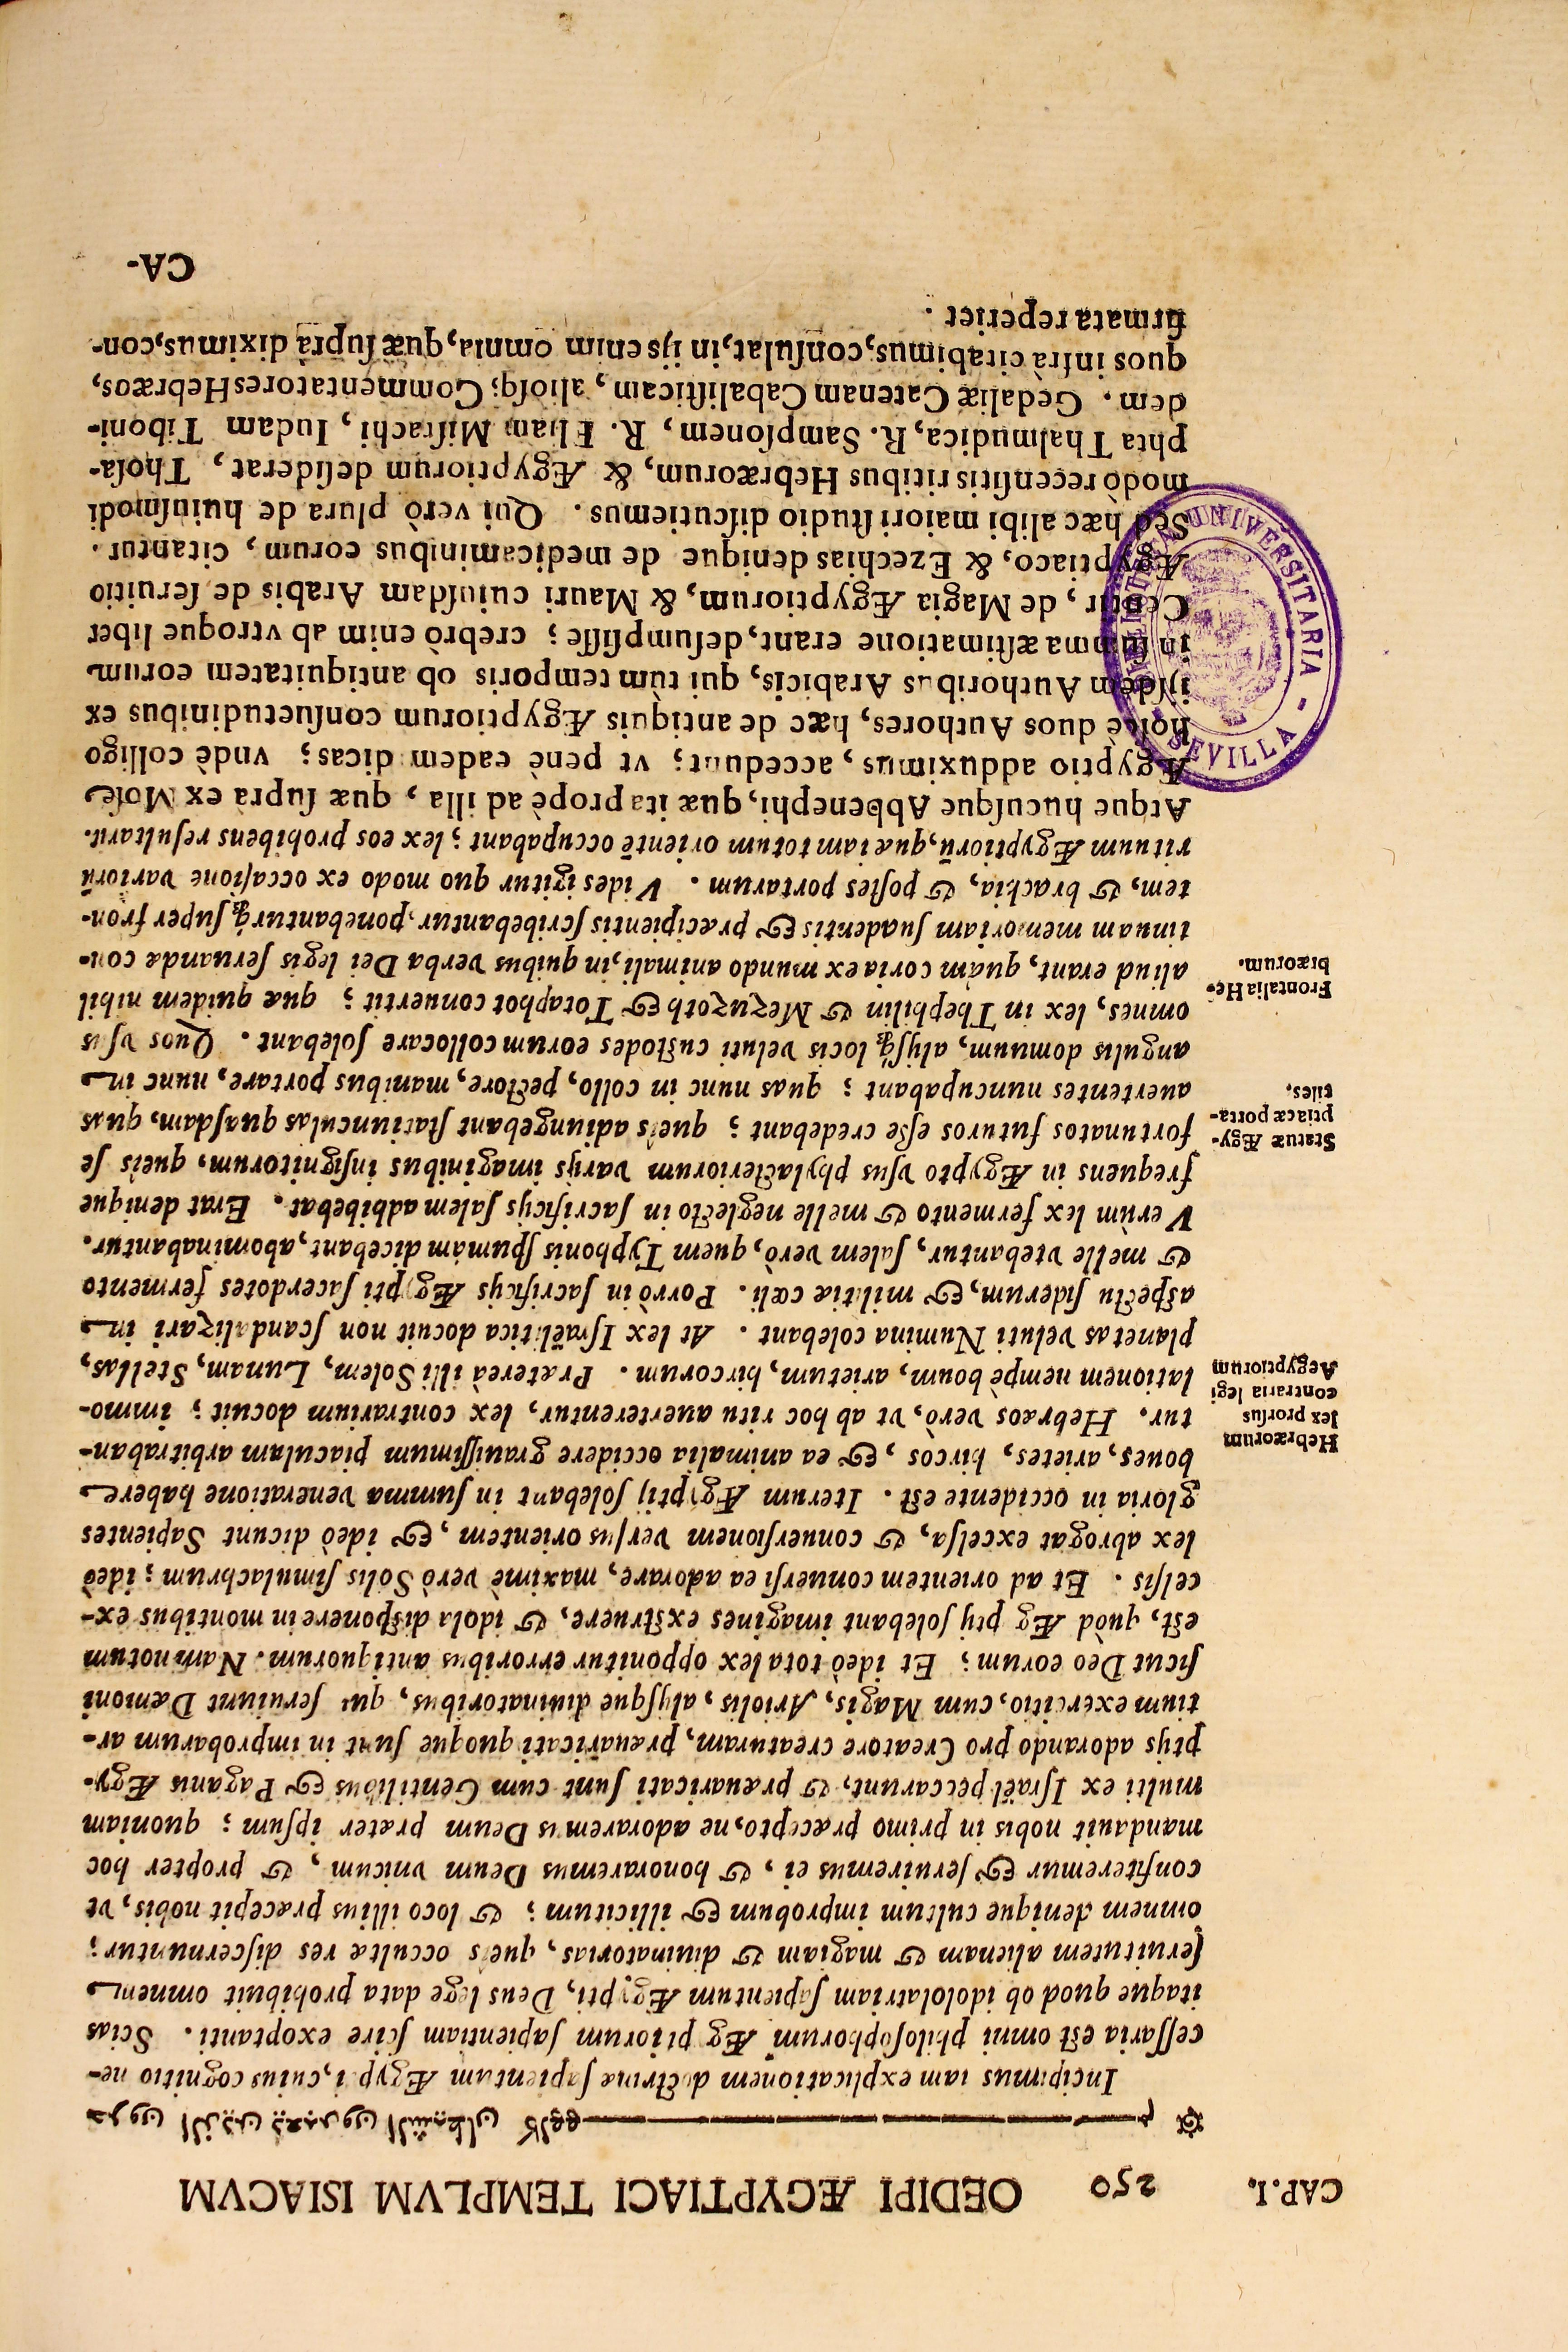 CAP. I. 250 OEDIPI ÆGYPTIACI TEMPLVM ISIACVM
Incipimus iam explicationem doctrinæ sapientum Ægypti, cuius cognitio ne-
ceſſaria eſt omni philoſophorum Ægyptiorum ſapientiam ſcire exoptanti. Scias
itaque quod ob idololatriam ſapientum Ægypti, Deus lege data prohibuit omnem
ſeruitutem alienam & magiam & diuinatorias, queis occultæ res diſcernuntur;
omnem denique cultum improbum & illicitum; & loco illius præcepit nobis, vt
confiteremur & ſeruiremus ei, & honoraremus Deum vnicum, & propter hoc
mandauit nobis in primo præcepto, ne adoraremus Deum præter ipſum; quoniam
multi ex Iſraël peccarunt, & præuaricati ſunt cum Gentilibus & Paganis Ægy-
ptijs adorando pro Creatore creaturam, præuaricati quoque ſunt in improbarum ar-
tium exercitio, cum Magis, Ariolis, alijſque diuinatoribus, qui ſeruiunt Dæmoni
ſicut Deo eorum; Et ideò tota lex opponitur erroribus antiquorum. Nam notum
eſt, quòd Ægyptij ſolebant imagines exſtruere, & idola diſponere in montibus ex-
celſis. Et ad orientem conuerſi ea adorare, maximè verò Solis ſimulachrum; ideò
lex abrogat excelſa, & conuerſionem verſus orientem, & ideò dicunt Sapientes
gloria in occidente eſt. Iterum Ægyptij ſolebant in ſumma veneratione habere
boues, arietes, hircos, & ea animalia occidere grauiſſimum piaculum arbitraban-
tur. Hebræos verò, vt ab hoc ritu auerterentur, lex contrarium docuit; immo-
lationem nempè boum, arietum, hircorum. Prætereà illi Solem, Lunam, Stellas,
planetas veluti Numina colebant. At lex Iſraëlitica docuit non ſcandalizari in
aſpectu ſiderum, & militiæ cœli. Porrò in ſacrificijs Ægypti ſacerdotes fermento
& melle vtebantur, ſalem verò, quem Typhonis ſpumam dicebant, abominabantur.
Verùm lex fermento & melle neglecto in ſacrificijs ſalem adhibebat. Erat denique
frequens in Ægypto vſus phylacteriorum varijs imaginibus inſignitorum, queis ſe
fortunatos futuros eſſe credebant; queis adiungebant ſtatiunculas quaſdam, quas
auertentes nuncupabant; quas nunc in collo, pectore, manibus portare, nunc in
angulis domuum, alijſq; locis veluti cuſtodes eorum collocare ſolebant. Quos vſus
omnes, lex in Thephilin & Mezuzoth & Totaphot conuertit; quæ quidem nihil
aliud erant, quàm coria ex mundo animali, in quibus verba Dei legis ſeruandæ con-
tinuam memoriam ſuadentis & præcipientis ſcribebantur, ponebanturq; ſuper fron-
tem, & brachia, & poſtes portarum. Vides igitur quo modo ex occaſione variorū
rituum Ægyptiorū, quæ iam totum orientē occupabant; lex eos prohibens reſultarit.
Atque hucuſque Abbenephi, quæ ita propè ad illa, quæ ſuprà ex Moſe
Ægyptio adduximus, accedunt; vt penè eadem dicas; vndè colligo
hoſcè duos Authores, hæc de antiquis Ægyptiorum conſuetudinibus ex
ijſdem Authoribus Arabicis, qui tùm temporis ob antiquitatem eorum
in ſumma æſtimatione erant, deſumpſiſſe; crebrò enim ab vtroque liber
Centir, de Magia Ægyptiorum, & Mauri cuiuſdam Arabis de ſeruitio
Ægyptiaco, & Ezechias denique de medicaminibus eorum, citantur.
Sed hæc alibi maiori ſtudio diſcutiemus. Qui verò plura de huiuſmodi
modò recenſitis ritibus Hebræorum, & Ægyptiorum deſiderat, Thoſa-
phta Thalmudica, R. Sampſonem, R. Eliam Miſrachi, Iudam Tiboni-
dem. Gedaliæ Catenam Cabaliſticam, alioſq; Commentatores Hebræos,
quos infrà citabimus, conſulat, in ijs enim omnia, quæ ſuprà diximus, con-
firmata reperiet.
CA-
Hebræorum
lex prorſus
contraria legi
Aegyptiorum
Statuæ Ægy-
ptiacæ porta-
tiles.
Frontalia He-
bræorum.
UNIVERSITARIA
SEVILLA